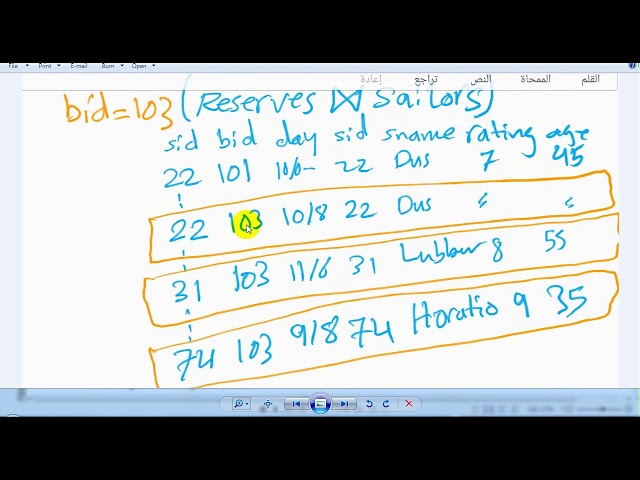 File Print E-mail Burn Open
القلم الممحاة النص تراجع إعادة
bid=103 (Reserves ⋈ Sailors)
sid bid day sid sname rating age
22 101 10/10- 22 Dus 7 45
22 103 10/8 22 Dus " "
31 103 11/6 31 Lubbur 8 55
74 103 9/8 74 Horatio 9 35